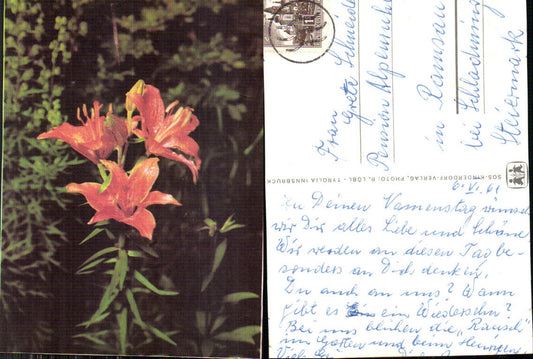 Frau
Grete Schneider
Pension Alpenruhe
in Ramsau
bei Schladming
Steiermark
SOS-KINDERDORF-VERLAG, PHOTO: R. LÖBL - TYROLIA INNSBRUCK
6. VI. 61
Zu Deinem Namenstag wünschen
wir Dir alles Liebe und Schöne
Wir werden an diesen Tag be-
sonders an Dich denken.
Du auch an uns? Wann
gibt es ein Wiedersehn?
Bei uns blühen die „Räusch"
im Garten und beim